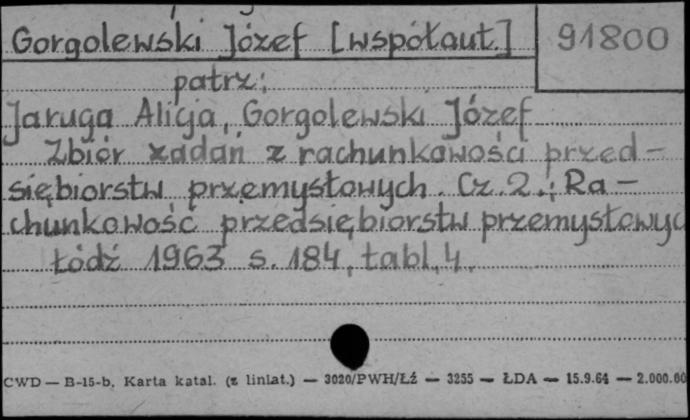 Gorgolewski Józef [współaut.] 91800
patrz:
Jaruga Alicja, Gorgolewski Józef
Zbiór zadań z rachunkowości przed-
siębiorstw przemysłowych. Cz. 2.: Ra-
chunkowość przedsiębiorstw przemysłowyc
Łódź 1963 s. 184, tabl. 4.
CWD — B-15-b, Karta katal. (z liniat.) — 3020/PWH/Łź — 3255 — ŁDA — 15.9.64 — 2.000.00